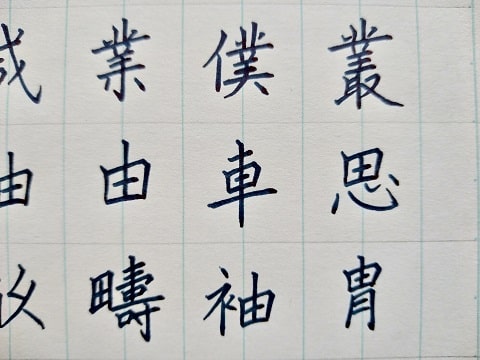 業 僕 叢
由 車 思
疇 袖 胄